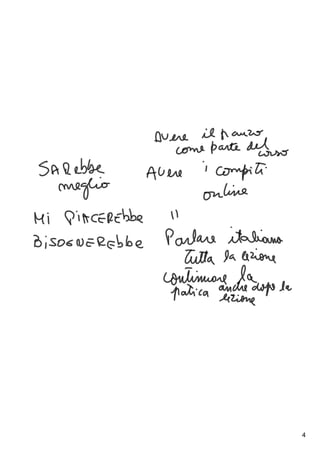 Avere il pranzo
come parte del
corso
SARebbe
meglio
Avere i compiti
online
Mi PIACEREbbe "
BISOGNEREbbe Parlare italiano
tutta la lezione
continuare la
pratica anche dopo la
lezione
4